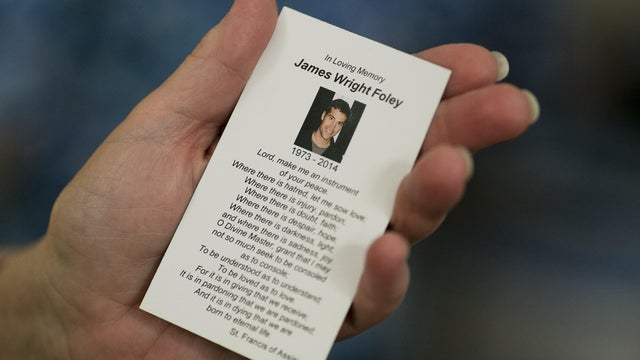 In Loving Memory
James Wright Foley
1973 - 2014
Lord, make me an instrument
of your peace.
Where there is hatred, let me sow love;
Where there is injury, pardon;
Where there is doubt, faith;
Where there is despair, hope;
Where there is darkness, light,
and where there is sadness, joy.
O Divine Master, grant that I may
not so much seek to be consoled
as to console;
To be understood as to understand;
To be loved as to love.
For it is in giving that we receive;
It is in pardoning that we are pardoned;
And it is in dying that we are
born to eternal life.
St. Francis of Assisi